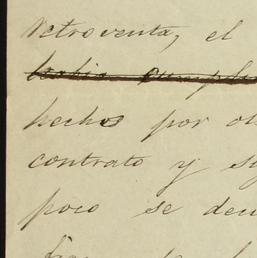 retroventa, el
había cumpli
hechos por
contrato y
poco se